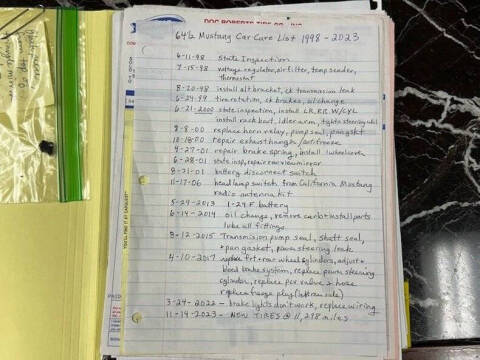 DOC ROBERTS TIRE CO., INC.
64½ Mustang Car Care List 1998 - 2023
6-11-98 State Inspection
7-15-98 voltage regulator, air filter, temp sender,
thermostat
8-20-98 install alt bracket, ck transmission leak
6-24-99 tire rotation, ck brakes, oil change
6-21-2000 state inspection, install LR, RR W/CYL
install rack boot, idler arm, tighten steering
8-8-00 replace horn relay, pump seal, pan gskt
10-18-00 repair exhaust hangers/antifreeze
4-27-01 repair brake spring, install wheel
6-28-01 state insp, repair rear view mirror
8-21-01 battery disconnect switch
11-17-06 headlamp switch from California Mustang
radio antenna kit
5-29-2013 1-29F battery
6-14-2014 oil change, remove carb + install parts
lube all fittings
8-12-2015 Transmission pump seal, shaft seal,
+ pan gasket, power steering leak
4-10-2017 frt + rear wheel cylinders, adjust +
bleed brake system, replace power steering
cylinder, replace pcv valve & hose
replace
3-24-2022 - brake lights don't work, replace wiring
11-14-2023 - NEW TIRES @ 11,298 miles